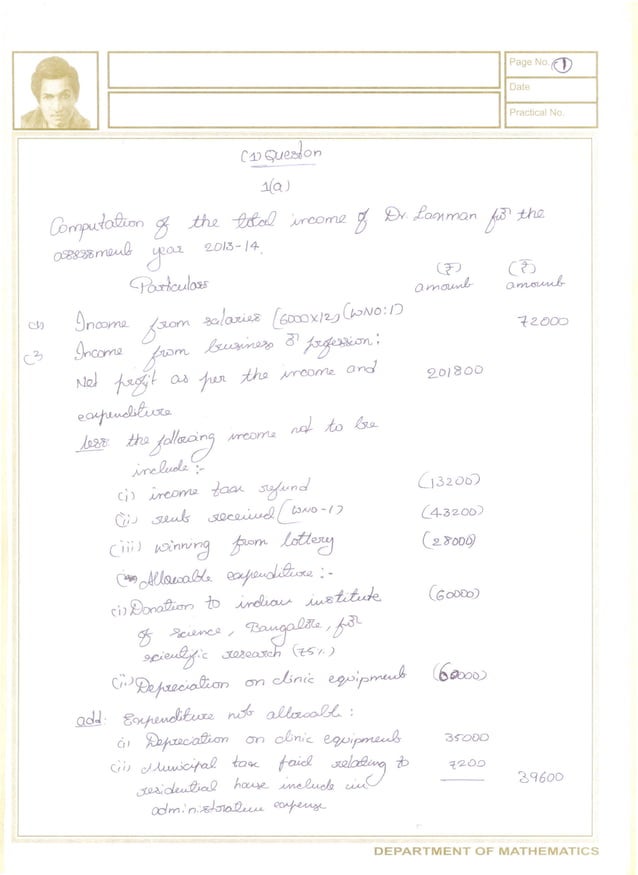 Page No. 1
Date
Practical No.
(1) Question
1(a)
Computation of the total income of Dr. Laxman for the
assessment year 2013-14.
Particulars (₹) amount (₹) amount
(1) Income from salaries (6000x12) (WNO:1) 72000
(2) Income from business or profession:
Net profit as per the income and 201800
expenditure
less: the following income not to be
include :-
(i) income tax refund (13200)
(ii) rent received (WNO-1) (43200)
(iii) winning from lottery (28000)
Allowable expenditure :-
(i) Donation to indian institute (60000)
of science, Bangalore, for
scientific research (75%)
(ii) Depreciation on clinic equipment (60000)
add: Expenditure not allowable :
(i) Depreciation on clinic equipments 35000
(ii) Municipal tax paid relating to 7200
residential house include in 39600
administrative expense
DEPARTMENT OF MATHEMATICS